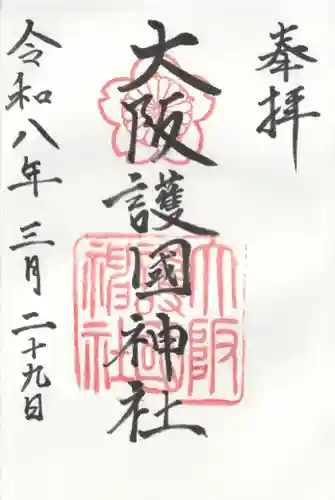 奉拝
大阪護國神社
令和八年三月二十九日
大阪
護國
神社